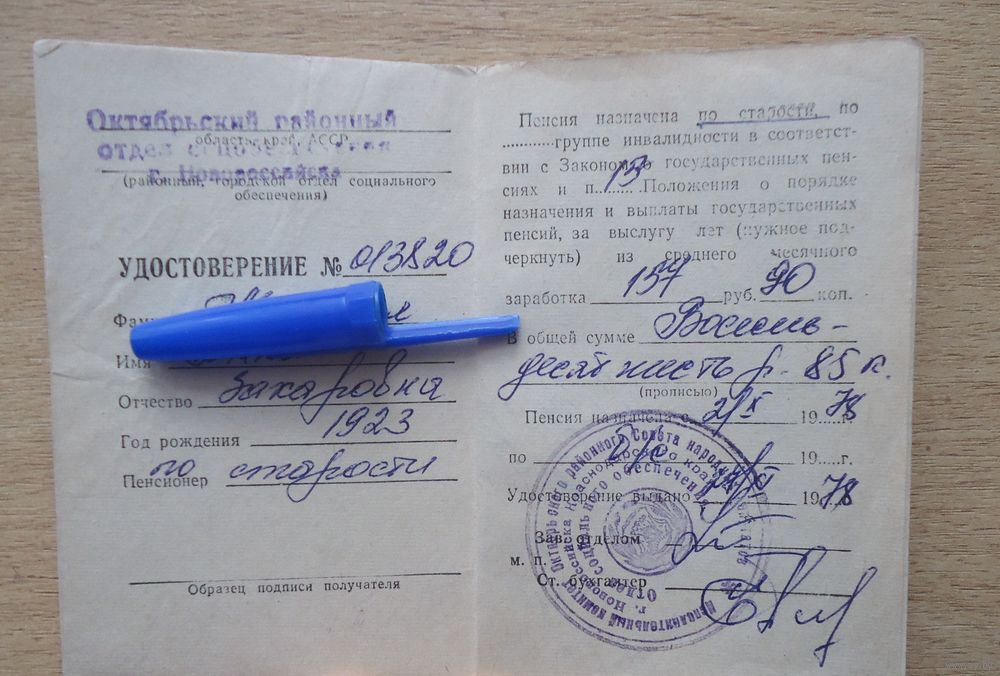 Октябрьский районный
область, край, АССР
отдел
г. Новороссийска
(районный, городской отдел социального
обеспечения)
УДОСТОВЕРЕНИЕ № 013820
Фам
Имя
Отчество Захаровна
Год рождения 1923
Пенсионер по старости
Образец подписи получателя
Пенсия назначена по старости, по
............группе инвалидности в соответст-
вии с Законом о государственных пен-
сиях и п. 13 Положения о порядке
назначения и выплаты государственных
пенсий, за выслугу лет (нужное под-
черкнуть) из среднего месячного
заработка 157 руб. 90 коп.
В общей сумме Восемь-
десят шесть р. 85 к.
(прописью)
Пенсия назначена с 2/X 1978 г.
по 19.....г.
Удостоверение выдано 1978
Зав. отделом
м. п.
Ст. бухгалтер
Исполнительный комитет Октябрьского районного Совета народных депутатов
г. Новороссийска Краснодарского края
Отдел социального обеспечения